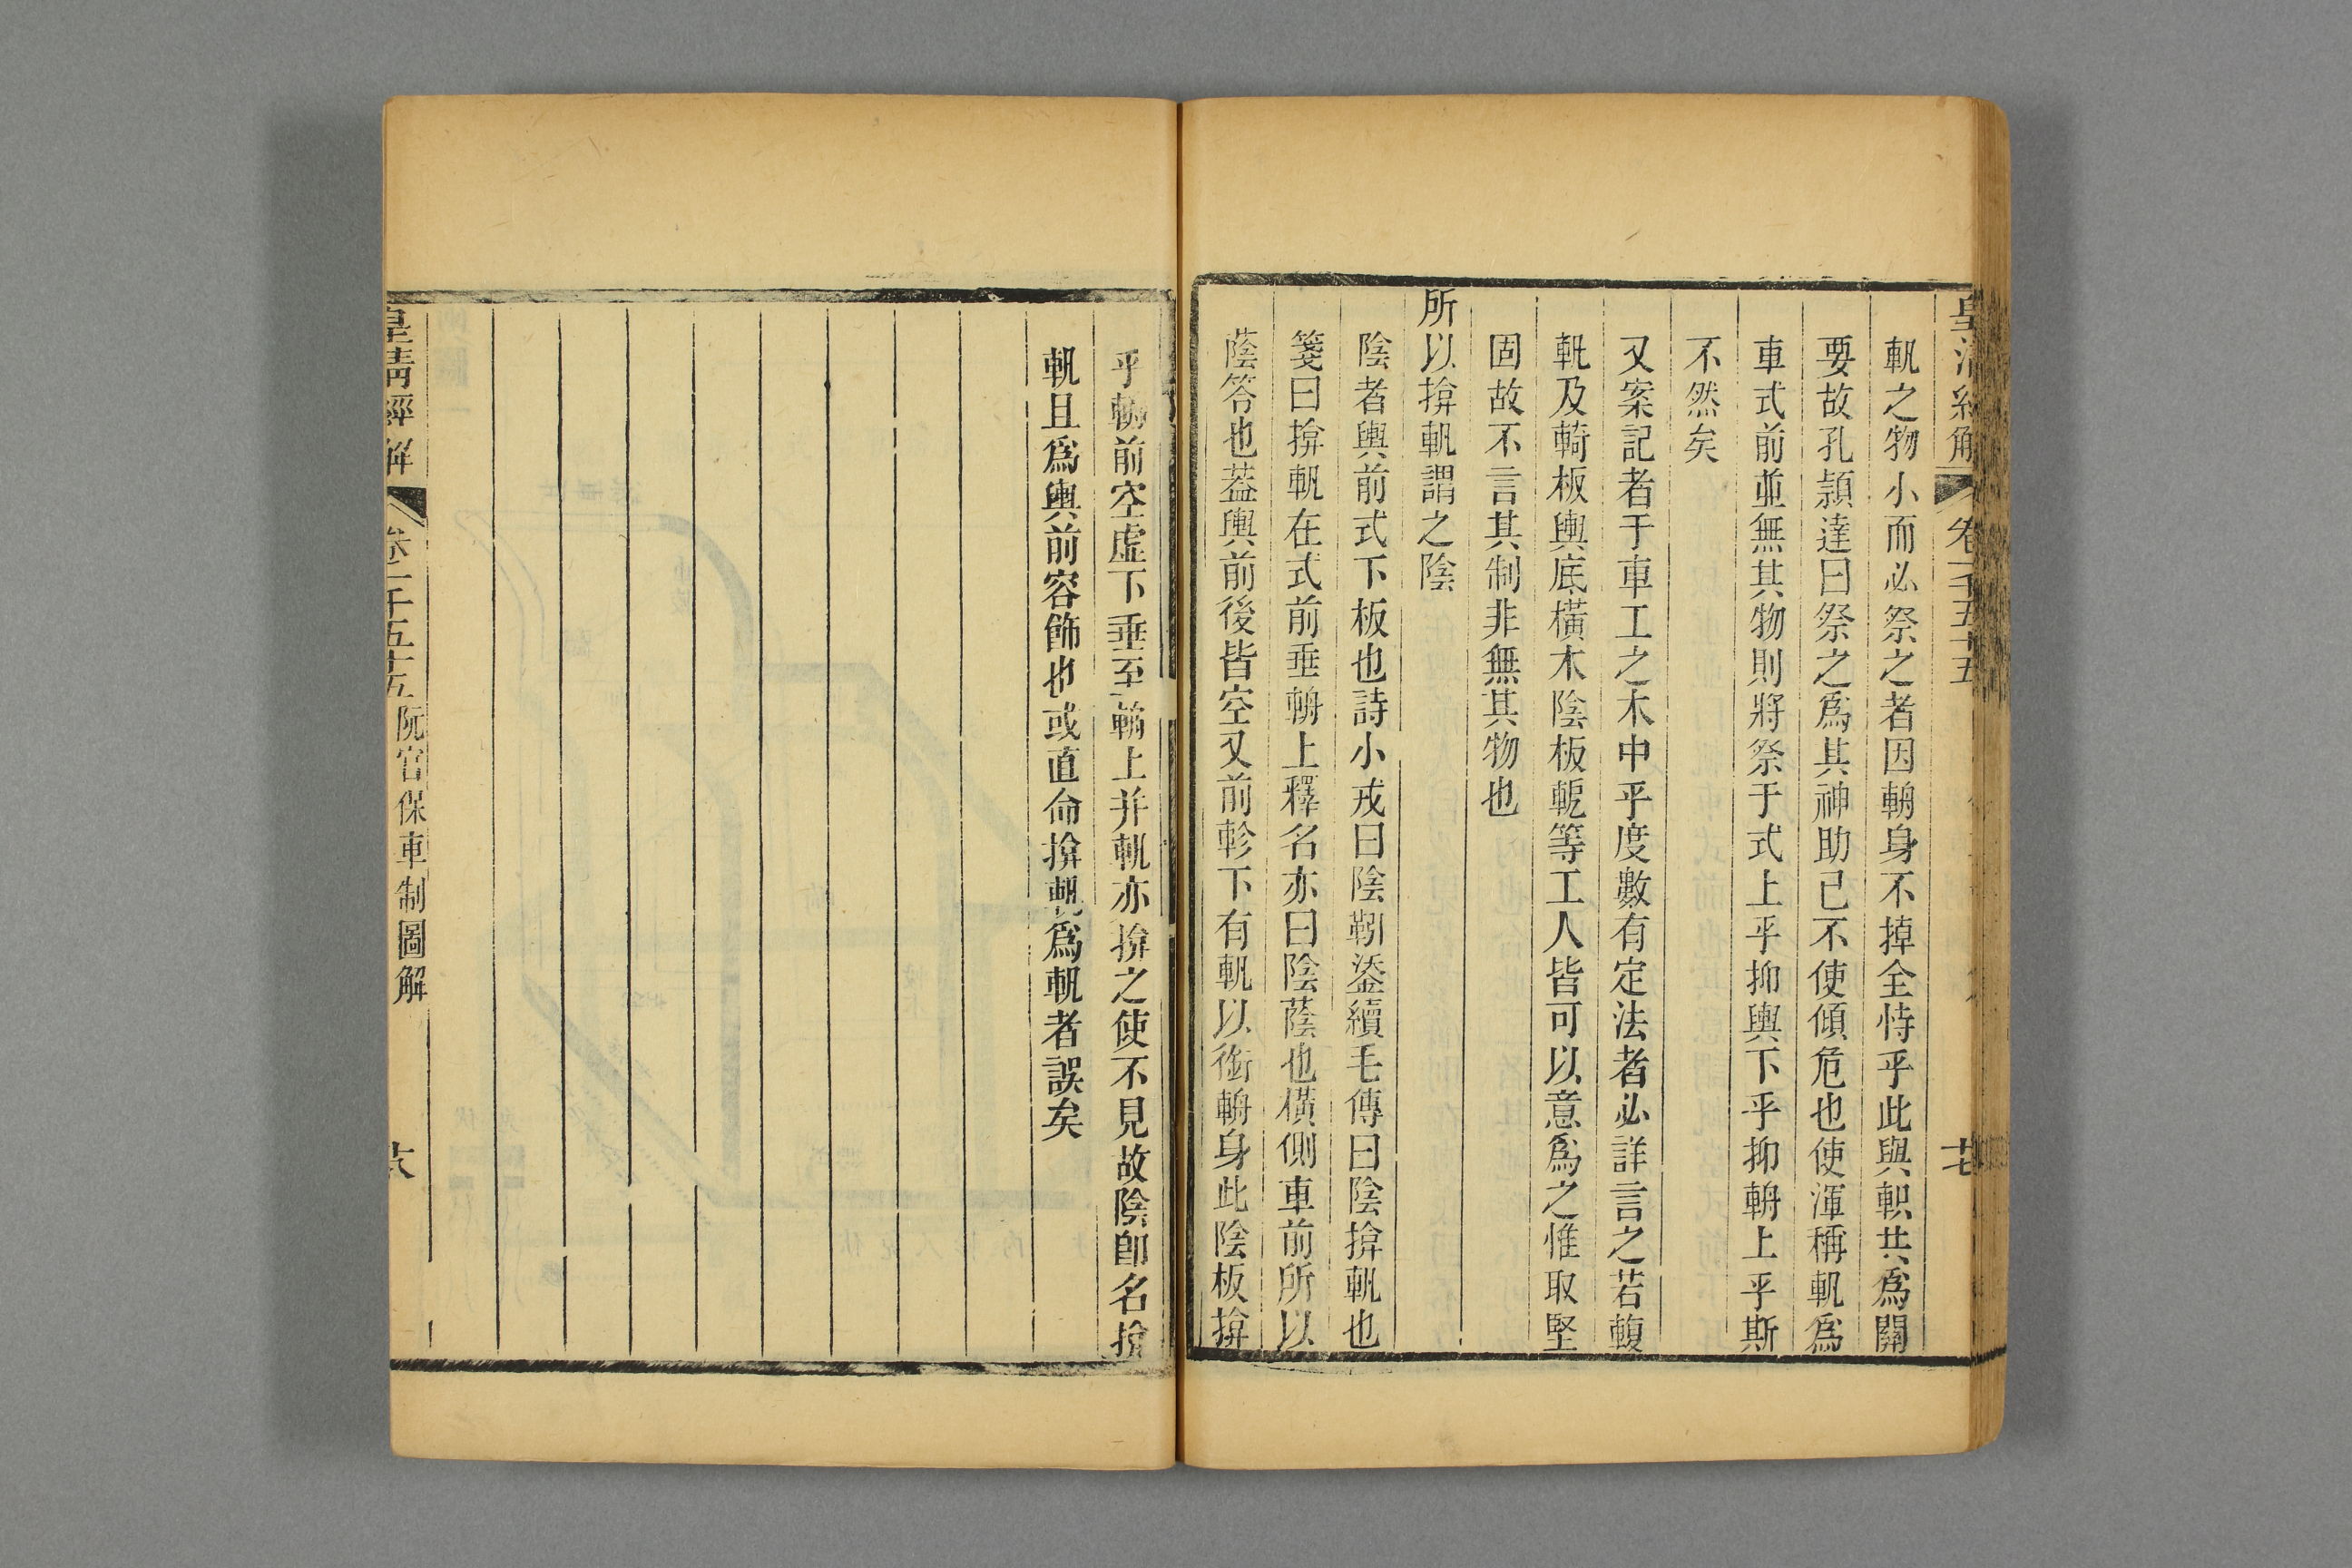 皇清經解 卷一千五十五 十七
軓之物小而必祭之者因輈身不掉全恃乎此與軹共爲關
要故孔頴達曰祭之爲其神助己不使傾危也使渾稱軓爲
車式前並無其物則將祭于式上乎抑輿下乎抑輈上乎斯
不然矣
又案記者于車工之木中乎度數有定法者必詳言之若輹
軓及輢板輿底橫木陰板軶等工人皆可以意爲之惟取堅
固故不言其制非無其物也
所以揜軓謂之陰
陰者輿前式下板也詩小戎曰陰靷鋈續毛傳曰陰揜軓也
箋曰揜軓在式前垂輈上釋名亦曰陰蔭也橫側車前所以
蔭笭也葢輿前後皆空又前軫下有軓以銜輈身此陰板揜
乎輢前空虛下垂至輈上并軓亦揜之使不見故陰卽名揜
軓且爲輿前容飾也或直命揜軓爲軓者誤矣
皇清經解 卷一千五十五 阮宫保車制圖解 六